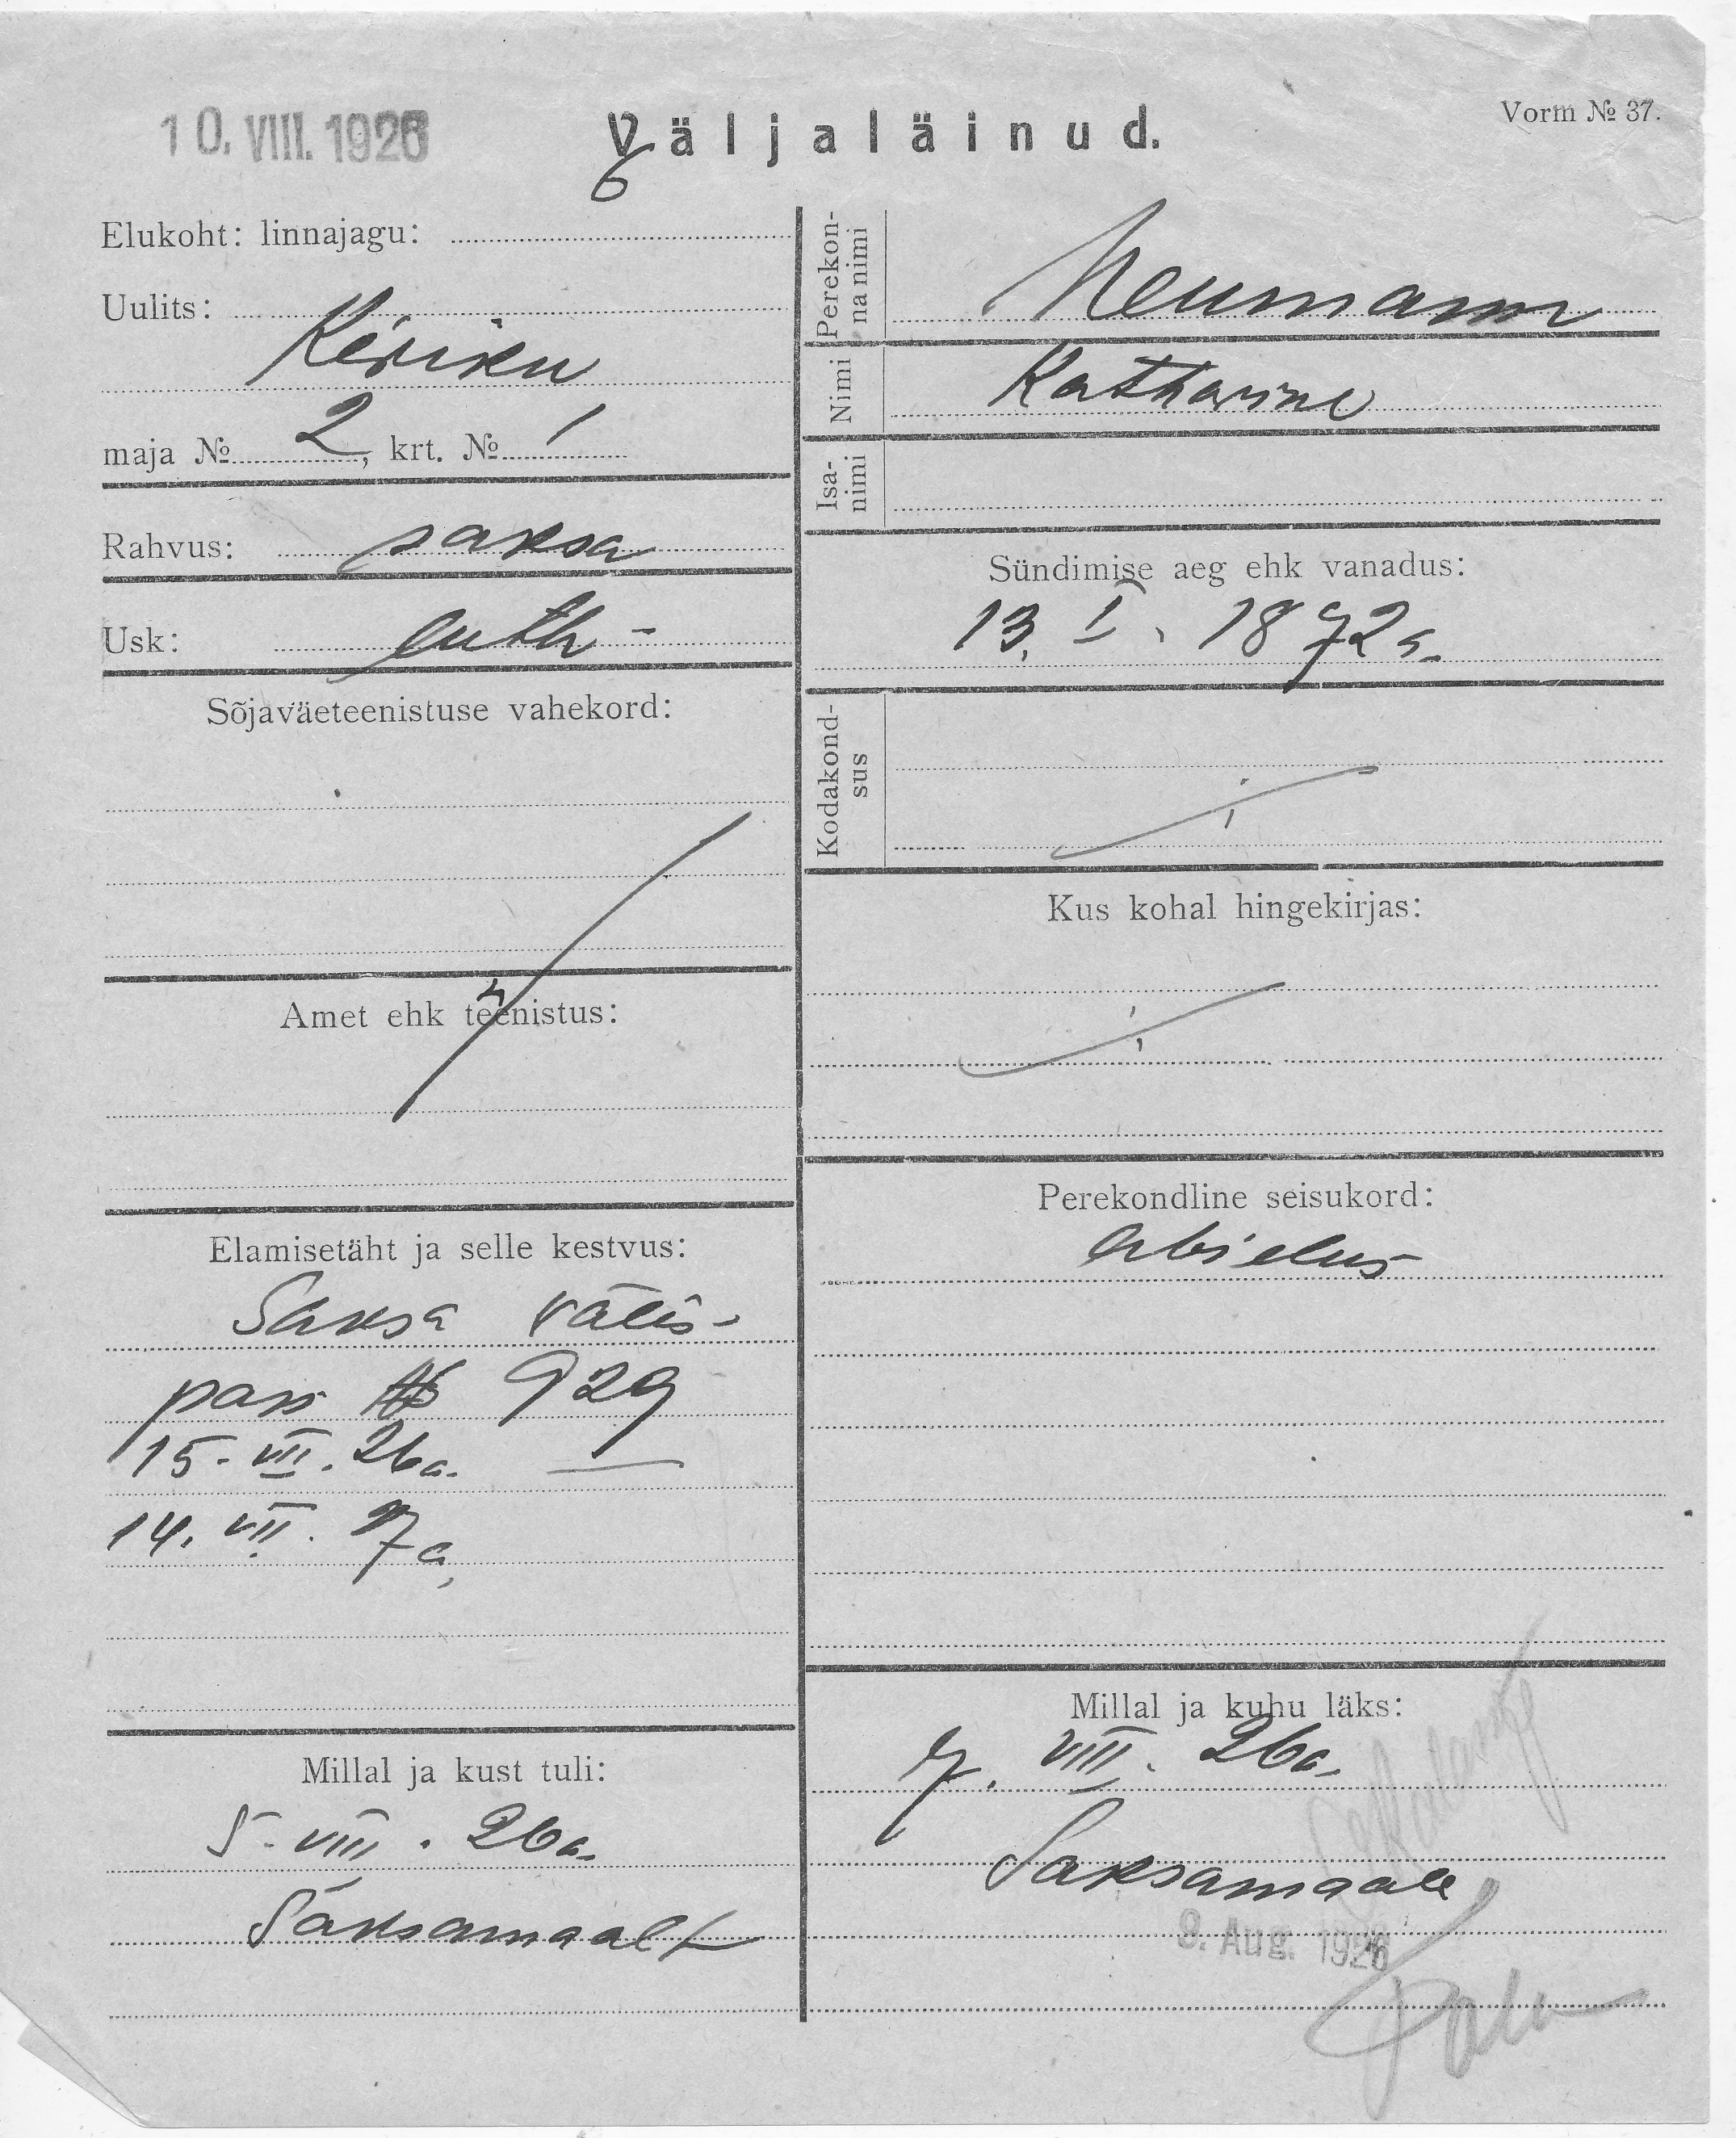 10. VIII. 1926
Väljaläinud.
Vorm № 37.
6
Elukoht: linnajagu:
Uulits:
Kiriku
maja № 2, krt. № 1
Rahvus: saksa
Usk: luth-
Sõjaväeteenistuse vahekord:
Amet ehk teenistus:
Elamisetäht ja selle kestvus:
Saksa välis-
pass № 929
15. VII. 26a. —
14. VII. 27a.
Millal ja kust tuli:
5. VIII. 26a.
Saksamaalt
Perekon-
na nimi
Neumann
Nimi
Katharine
Isa-
nimi
Sündimise aeg ehk vanadus:
13. I. 1872a.
Kodakond-
sus
Kus kohal hingekirjas:
Perekondline seisukord:
abielus
Millal ja kuhu läks:
7. VIII. 26a.
Saksamaale
9. Aug. 1926